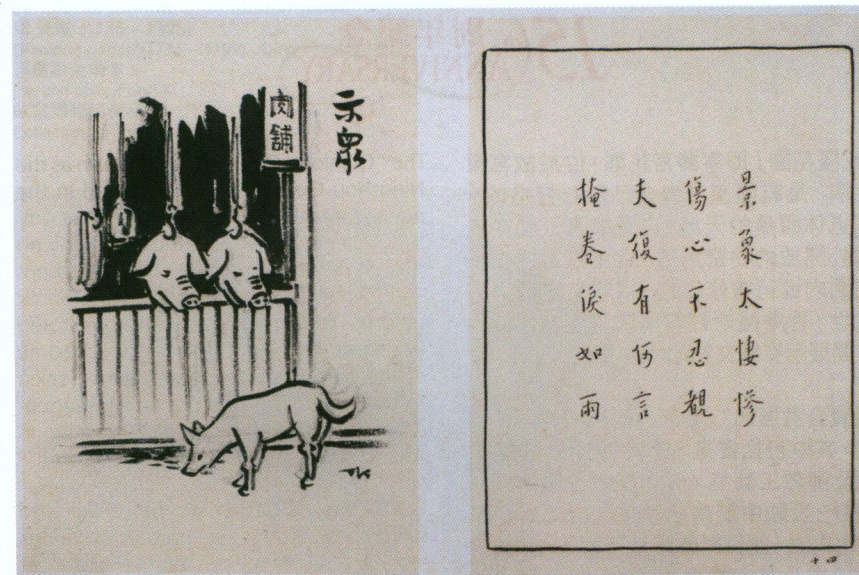 示眾
肉舖
TK
景象太悽慘
傷心不忍覩
夫復有何言
掩卷淚如雨
十四